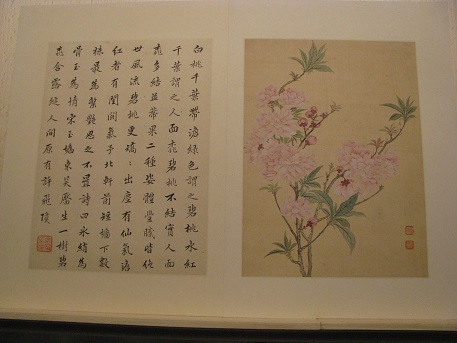 白桃千葉帶澹綠色謂之碧桃水紅
千葉謂之人面桃碧桃不結實人面
桃多結並蒂果二種姿體豐穠皆
世風流碧桃更矯矯出塵有仙氣澹
紅者有閨閣氣予北軒前短墻下數
株最為繁艷思之不置詩曰氷綃為
骨玉為情宋玉墻東笑靨生一樹碧
桃含露綻人間原有許飛瓊